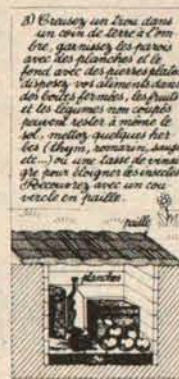 3) Creusez un trou dans
un coin de terre à l'om-
bre, garnissez les parois
avec des planches et le
fond avec des pierres plates
disposez vos aliments dans
des boîtes fermées, les fruits
et les légumes non coupés
peuvent rester à même le
sol. mettez quelques her
bes (thym, romarin, sauge
etc...) ou une tasse de vinai
gre pour éloigner les insectes
Recouvrez avec un cou
vercle en paille.
paille
planches